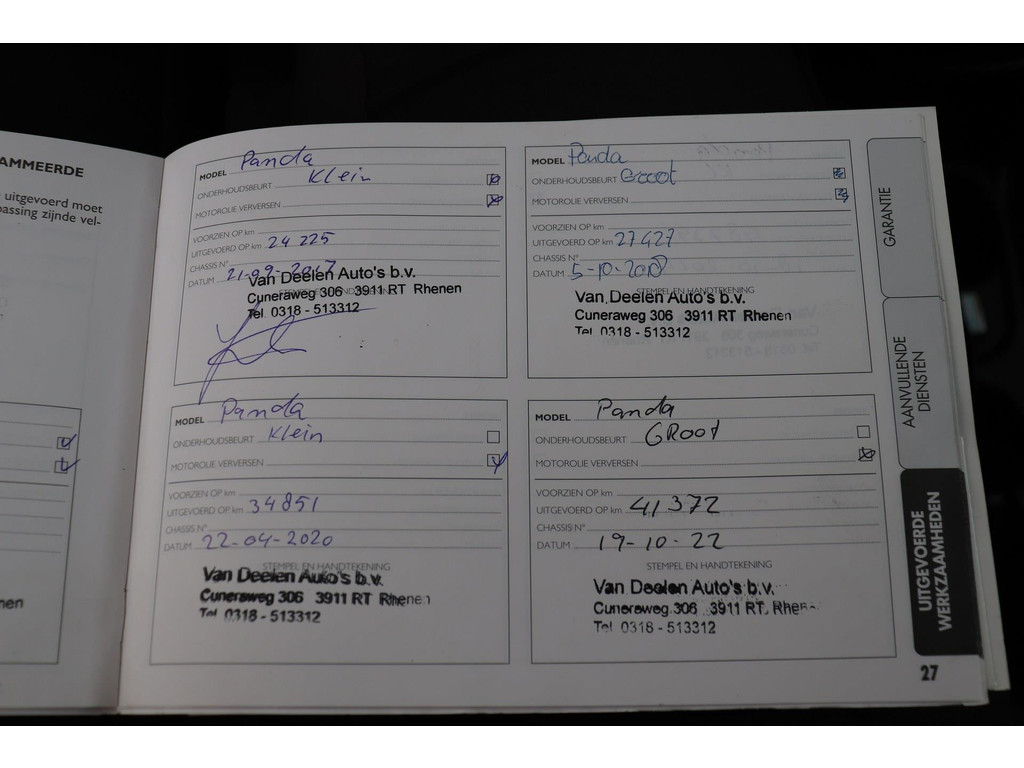 AMMEERDE
uitgevoerd moet
passing zijnde vel-
MODEL Panda
ONDERHOUDSBEURT Klein
MOTOROLIE VERVERSEN
VOORZIEN OP km
UITGEVOERD OP km 24 225
CHASSIS N°
DATUM 21-09-2017
STEMPEL EN HANDTEKENING
Van Deelen Auto's b.v.
Cuneraweg 306 3911 RT Rhenen
Tel 0318 - 513312
MODEL Panda
ONDERHOUDSBEURT Groot
MOTOROLIE VERVERSEN
VOORZIEN OP km
UITGEVOERD OP km 27427
CHASSIS N°
DATUM 5-10-2018
STEMPEL EN HANDTEKENING
Van Deelen Auto's b.v.
Cuneraweg 306 3911 RT Rhenen
Tel 0318 - 513312
MODEL Panda
ONDERHOUDSBEURT Klein
MOTOROLIE VERVERSEN
VOORZIEN OP km
UITGEVOERD OP km 34851
CHASSIS N°
DATUM 22-04-2020
STEMPEL EN HANDTEKENING
Van Deelen Auto's b.v.
Cuneraweg 306 3911 RT Rhenen
Tel 0318 - 513312
MODEL Panda
ONDERHOUDSBEURT GROOT
MOTOROLIE VERVERSEN
VOORZIEN OP km
UITGEVOERD OP km 41372
CHASSIS N°
DATUM 19-10-22
STEMPEL EN HANDTEKENING
Van Deelen Auto's b.v.
Cuneraweg 306 3911 RT Rhenen
Tel 0318 - 513312
GARANTIE
AANVULLENDE
DIENSTEN
UITGEVOERDE
WERKZAAMHEDEN
27